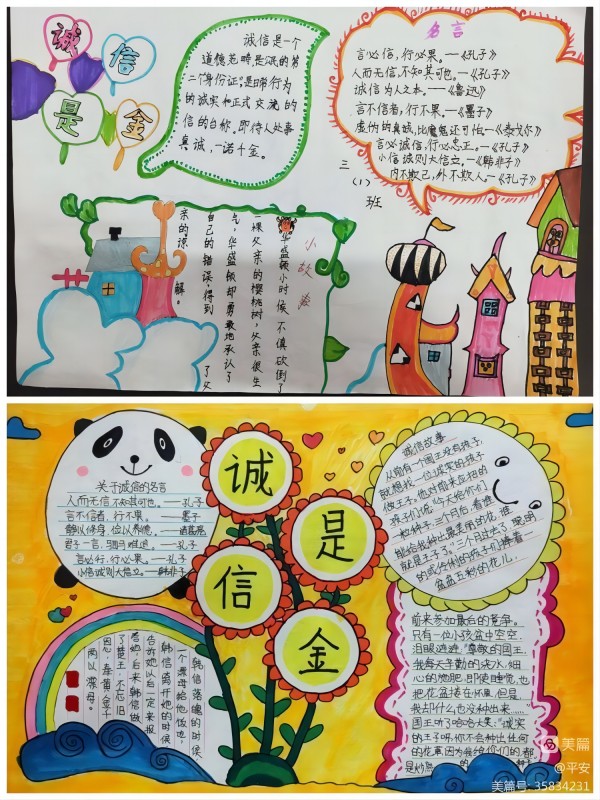 诚
信
是
金
诚信是一个
道德范畴是公民的第
二个身份证,是日常行为
的诚实和正式交流的
信的合称。即待人处事
真诚,一诺千金。
名言
言必信,行必果。——《孔子》
人而无信,不知其可也。——《孔子》
诚信为人之本。——《鲁迅》
言不信者,行不果。——《墨子》
虚伪的真诚,比魔鬼还可怕——《泰戈尔》
言必诚信,行必忠正。——《孔子》
小信诚则大信立。——《韩非子》
内不欺己,外不欺人——《孔子》
三
(1)
班
小故事
华盛顿小时候,不慎砍倒了
一棵父亲的樱桃树,父亲很生
气,华盛顿却勇敢地承认了
自己的错误,得到了父
亲的谅解。
诚
是
信
金
关于诚信的名言
人而无信不知其可也。——孔子
言不信者,行不果。——墨子
君子一言,驷马难追。——孔子
言必行,行必果。——孔子
小信诚则大信立。——韩非子
韩信落魄的时候
一个漂母给他饭吃,
韩信离开她的时候
告诉她以后一定来报
答她,后来韩信做
了楚王,不忘旧
恩,奉黄金千
两以谢母。
诚信故事
从前有一个国王没有孩子,
就想找一位诚实的孩子
做王子。他对前来应招的
孩子们说:"今天给你们
一粒种子,三个月后,看谁
能给我种出最美丽的花,谁
就是王子了。"三个月过去了,聪明
的或伶俐的孩子们捧着一
盆盆五彩的花儿,
前来参加最后的竞争。
只有一位小孩盆中空空,
泪眼迷迷:"尊敬的国王,
我每天辛勤的浇水,细
心的施肥,即使睡觉,也
把花盆搂在怀里,但是,
我却什么也没种出来……"
国王听了哈哈大笑:"诚实
的王子呀,你不会种出任何
的花草,因为我给你们的,都
是炒熟的
美篇
@平安
美篇号: 35834231